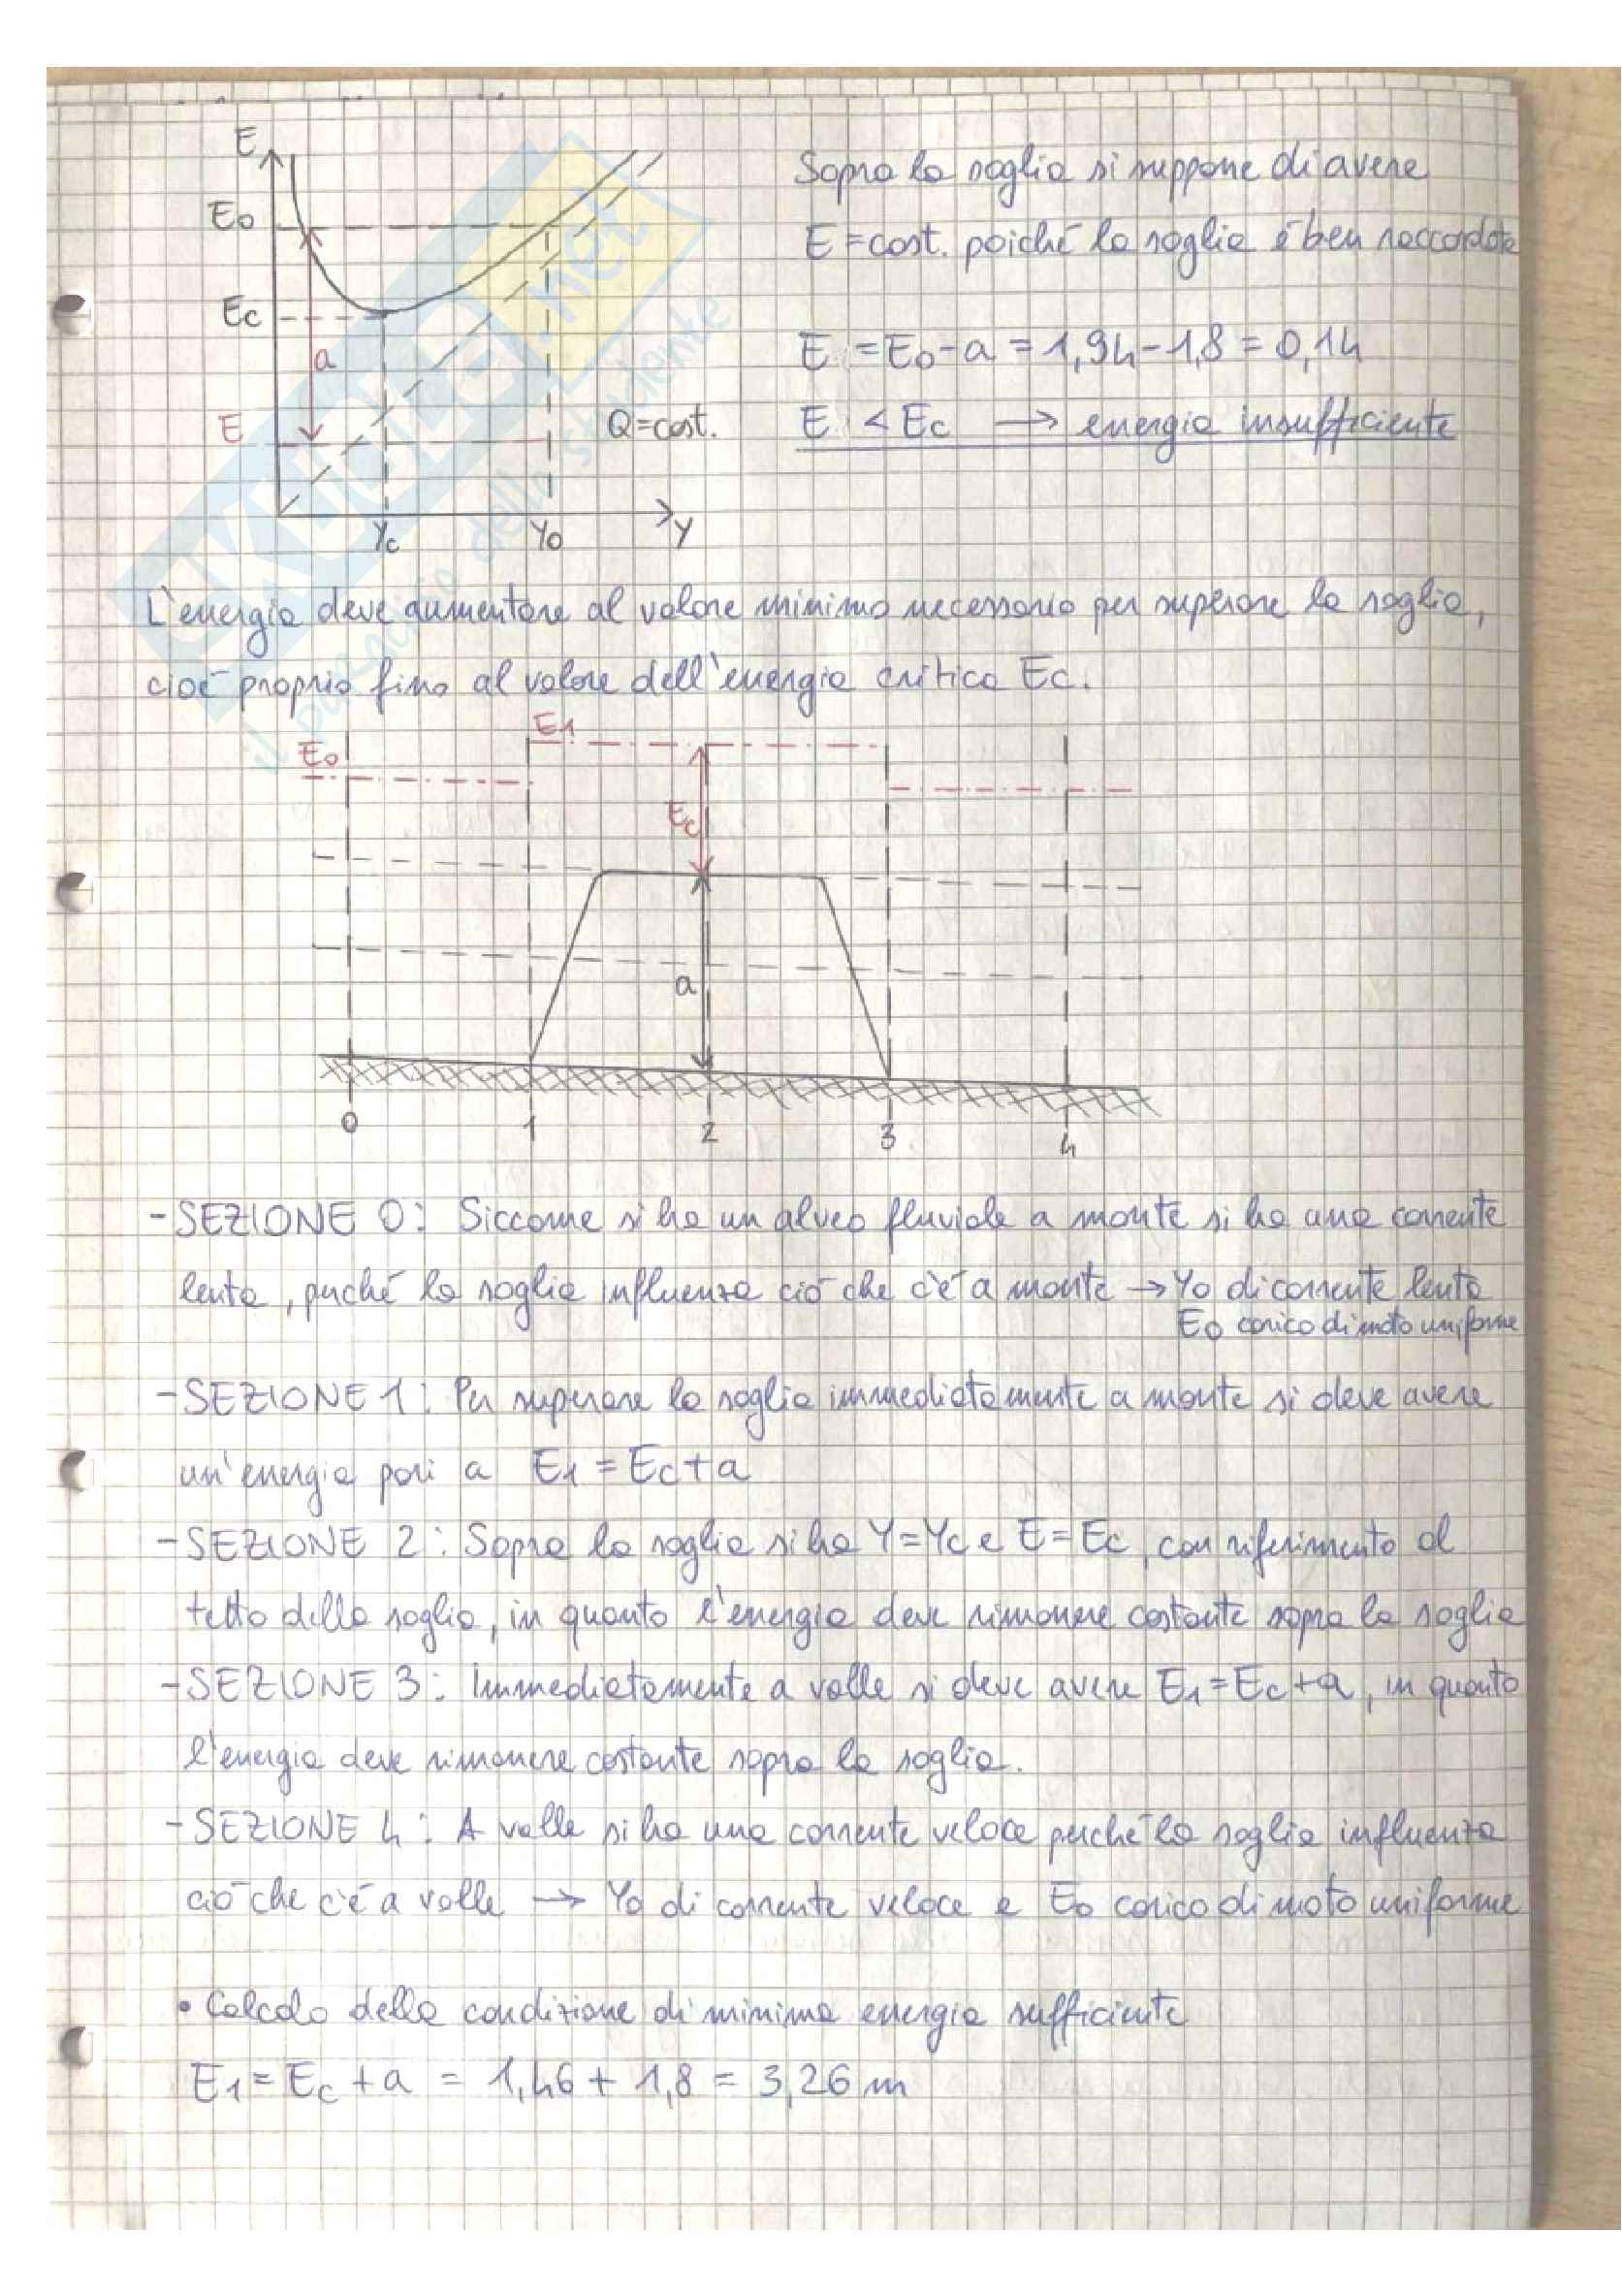 E
Eo
Ec
a
E
Q=cost.
Yc
Yo
Y
Sopra la soglia si suppone di avere
E=cost. poiché la soglia è ben raccordata
E = Eo-a = 1,94-1,8 = 0,14
E < Ec → energia insufficiente
SKUOLA.net
il paradiso dello studente
L'energia deve aumentare al valore minimo necessario per superare la soglia,
cioè proprio fino al valore dell'energia critica Ec.
Eo
E1
Ec
a
0 1 2 3 4
-SEZIONE 0: Siccome si ha un alveo fluviale a monte si ha una corrente
lenta, perché la soglia influenza ciò che c'è a monte → Yo di corrente lenta
Eo carico di moto uniforme
-SEZIONE 1: Per superare la soglia immediatamente a monte si deve avere
un'energia pari a E1 = Ec+a
-SEZIONE 2: Sopra la soglia si ha Y=Yc e E=Ec, con riferimento al
tetto della soglia, in quanto l'energia deve rimanere costante sopra la soglia
-SEZIONE 3: Immediatamente a valle si deve avere E1=Ec+a, in quanto
l'energia deve rimanere costante sopra la soglia.
-SEZIONE 4: A valle si ha una corrente veloce perché la soglia influenza
ciò che c'è a valle → Yo di corrente veloce e Eo carico di moto uniforme
• Calcolo della condizione di minima energia sufficiente
E1 = Ec + a = 1,46 + 1,8 = 3,26 m